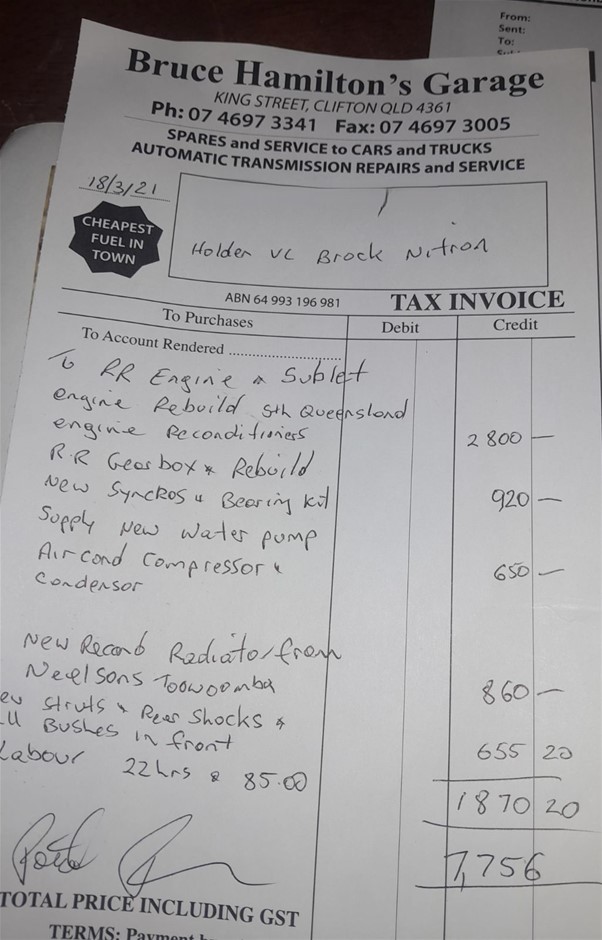 From:
Sent:
To:
Bruce Hamilton's Garage
KING STREET, CLIFTON QLD 4361
Ph: 07 4697 3341 Fax: 07 4697 3005
SPARES and SERVICE to CARS and TRUCKS
AUTOMATIC TRANSMISSION REPAIRS and SERVICE
18/3/21
CHEAPEST
FUEL IN
TOWN
Holden VC Brock Nitron
ABN 64 993 196 981 TAX INVOICE
To Purchases Debit Credit
To Account Rendered ........................
To RR Engine & Sublet
engine Rebuild Sth Queensland
engine Reconditioners 2800 —
R.R Gearbox & Rebuild
New Syncros & Bearing kit 920 —
Supply New Water pump
Aircond Compressor & 650 —
Condensor
New Record Radiator from
Neelsons Toowoomba 860 —
Struts & Rear Shocks &
Bushes in front 655 20
Labour 22 hrs @ 85.00
1870 20
7,756
TOTAL PRICE INCLUDING GST
TERMS: Payment